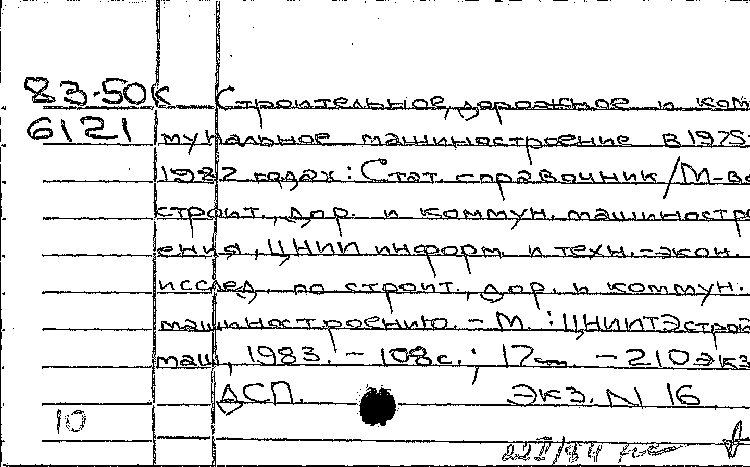 83-50К Строительное, дорожное и ком
6121 мунальное машиностроение в 1975-
1982 годах: Стат. справочник / М-во
строит., дор. и коммун. машиностро
ения, ЦНИИ информ. и техн.-экон.
исслед. по строит., дор. и коммун.
машиностроению. - М.: ЦНИИТЭстрой
маш, 1983. - 108с.; 17см. - 210 экз
ДСП. Экз. N 16
10